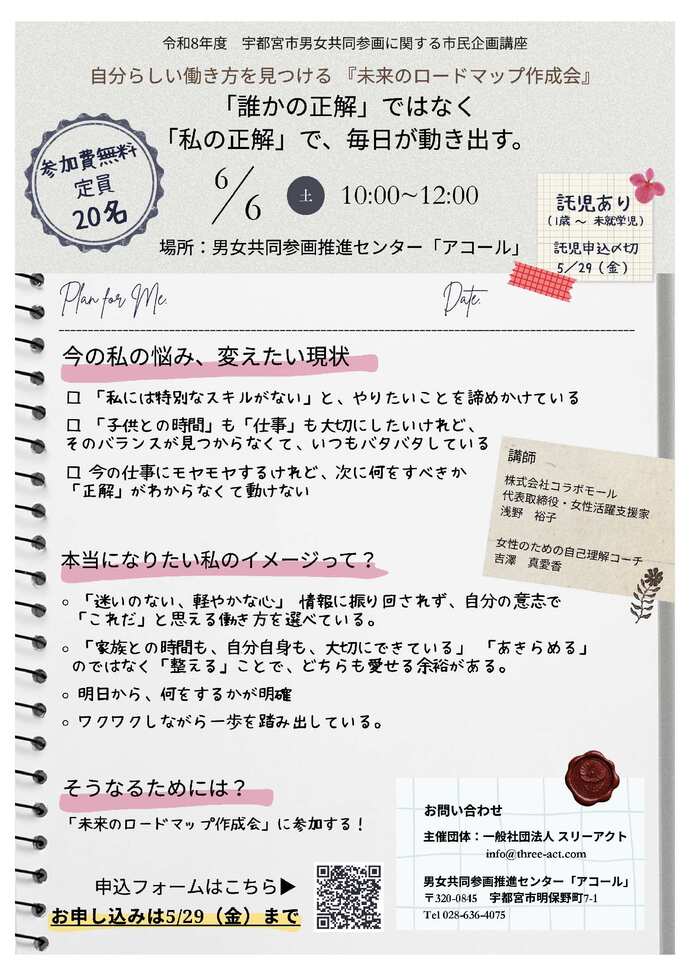 令和8年度　宇都宮市男女共同参画に関する市民企画講座
自分らしい働き方を見つける 『未来のロードマップ作成会』
「誰かの正解」ではなく
「私の正解」で、毎日が動き出す。
参加費無料
定員
20名
6/6
土
10:00~12:00
場所：男女共同参画推進センター「アコール」
託児あり
（1歳 〜 未就学児）
託児申込〆切
5／29（金）
Plan for Me.
Date.
今の私の悩み、変えたい現状
□ 「私には特別なスキルがない」と、やりたいことを諦めかけている
□ 「子供との時間」も「仕事」も大切にしたいけれど、
そのバランスが見つからなくて、いつもバタバタしている
□ 今の仕事にモヤモヤするけれど、次に何をすべきか
「正解」がわからなくて動けない
講師
株式会社コラボモール
代表取締役・女性活躍支援家
浅野　裕子
女性のための自己理解コーチ
吉澤　真愛香
本当になりたい私のイメージって？
○ 「迷いのない、軽やかな心」 情報に振り回されず、自分の意志で
「これだ」と思える働き方を選べている。
○ 「家族との時間も、自分自身も、大切にできている」 「あきらめる」
のではなく「整える」ことで、どちらも愛せる余裕がある。
○ 明日から、何をするかが明確
○ ワクワクしながら一歩を踏み出している。
そうなるためには？
「未来のロードマップ作成会」に参加する！
申込フォームはこちら▶
お申し込みは5/29（金）まで
お問い合わせ
主催団体：一般社団法人 スリーアクト
info@three-act.com
男女共同参画推進センター「アコール」
〒320-0845　宇都宮市明保野町7-1
Tel 028-636-4075